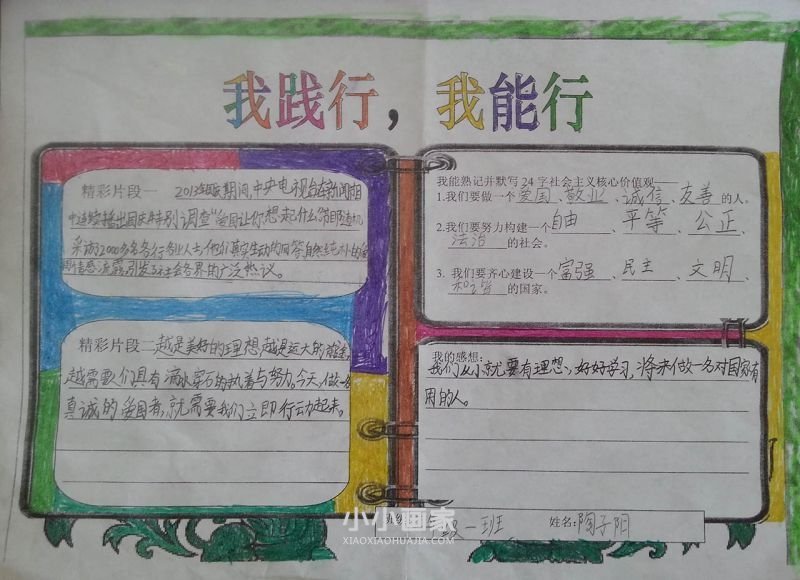 我践行，我能行
精彩片段一 2013国庆期间，中央电视台在新闻节目
中连续播出国庆特别调查“爱国让你想起什么”节目随机
采访2000多名各行各业人士，他们真实生动的回答自然纯朴的爱
国情感流露引发了社会各界的广泛热议。
精彩片段二 越是美好的理想，越是远大的
越需要人们具有滴水穿石的执着与努力。今天，做一名
真诚的爱国者，就需要我们立即行动起来。
我能熟记并默写24字社会主义核心价值观——
1.我们要做一个爱国、敬业、诚信、友善的人。
2.我们要努力构建一个自由、平等、公正、
法治的社会。
3. 我们要齐心建设一个富强、民主、文明、
和谐的国家。
我的感想：
我们从小就要有理想，好好学习，将来做一名对国家有
用的人。
一班 姓名：陶子阳
小小画家
XIAOXIAOHUAJIA.COM